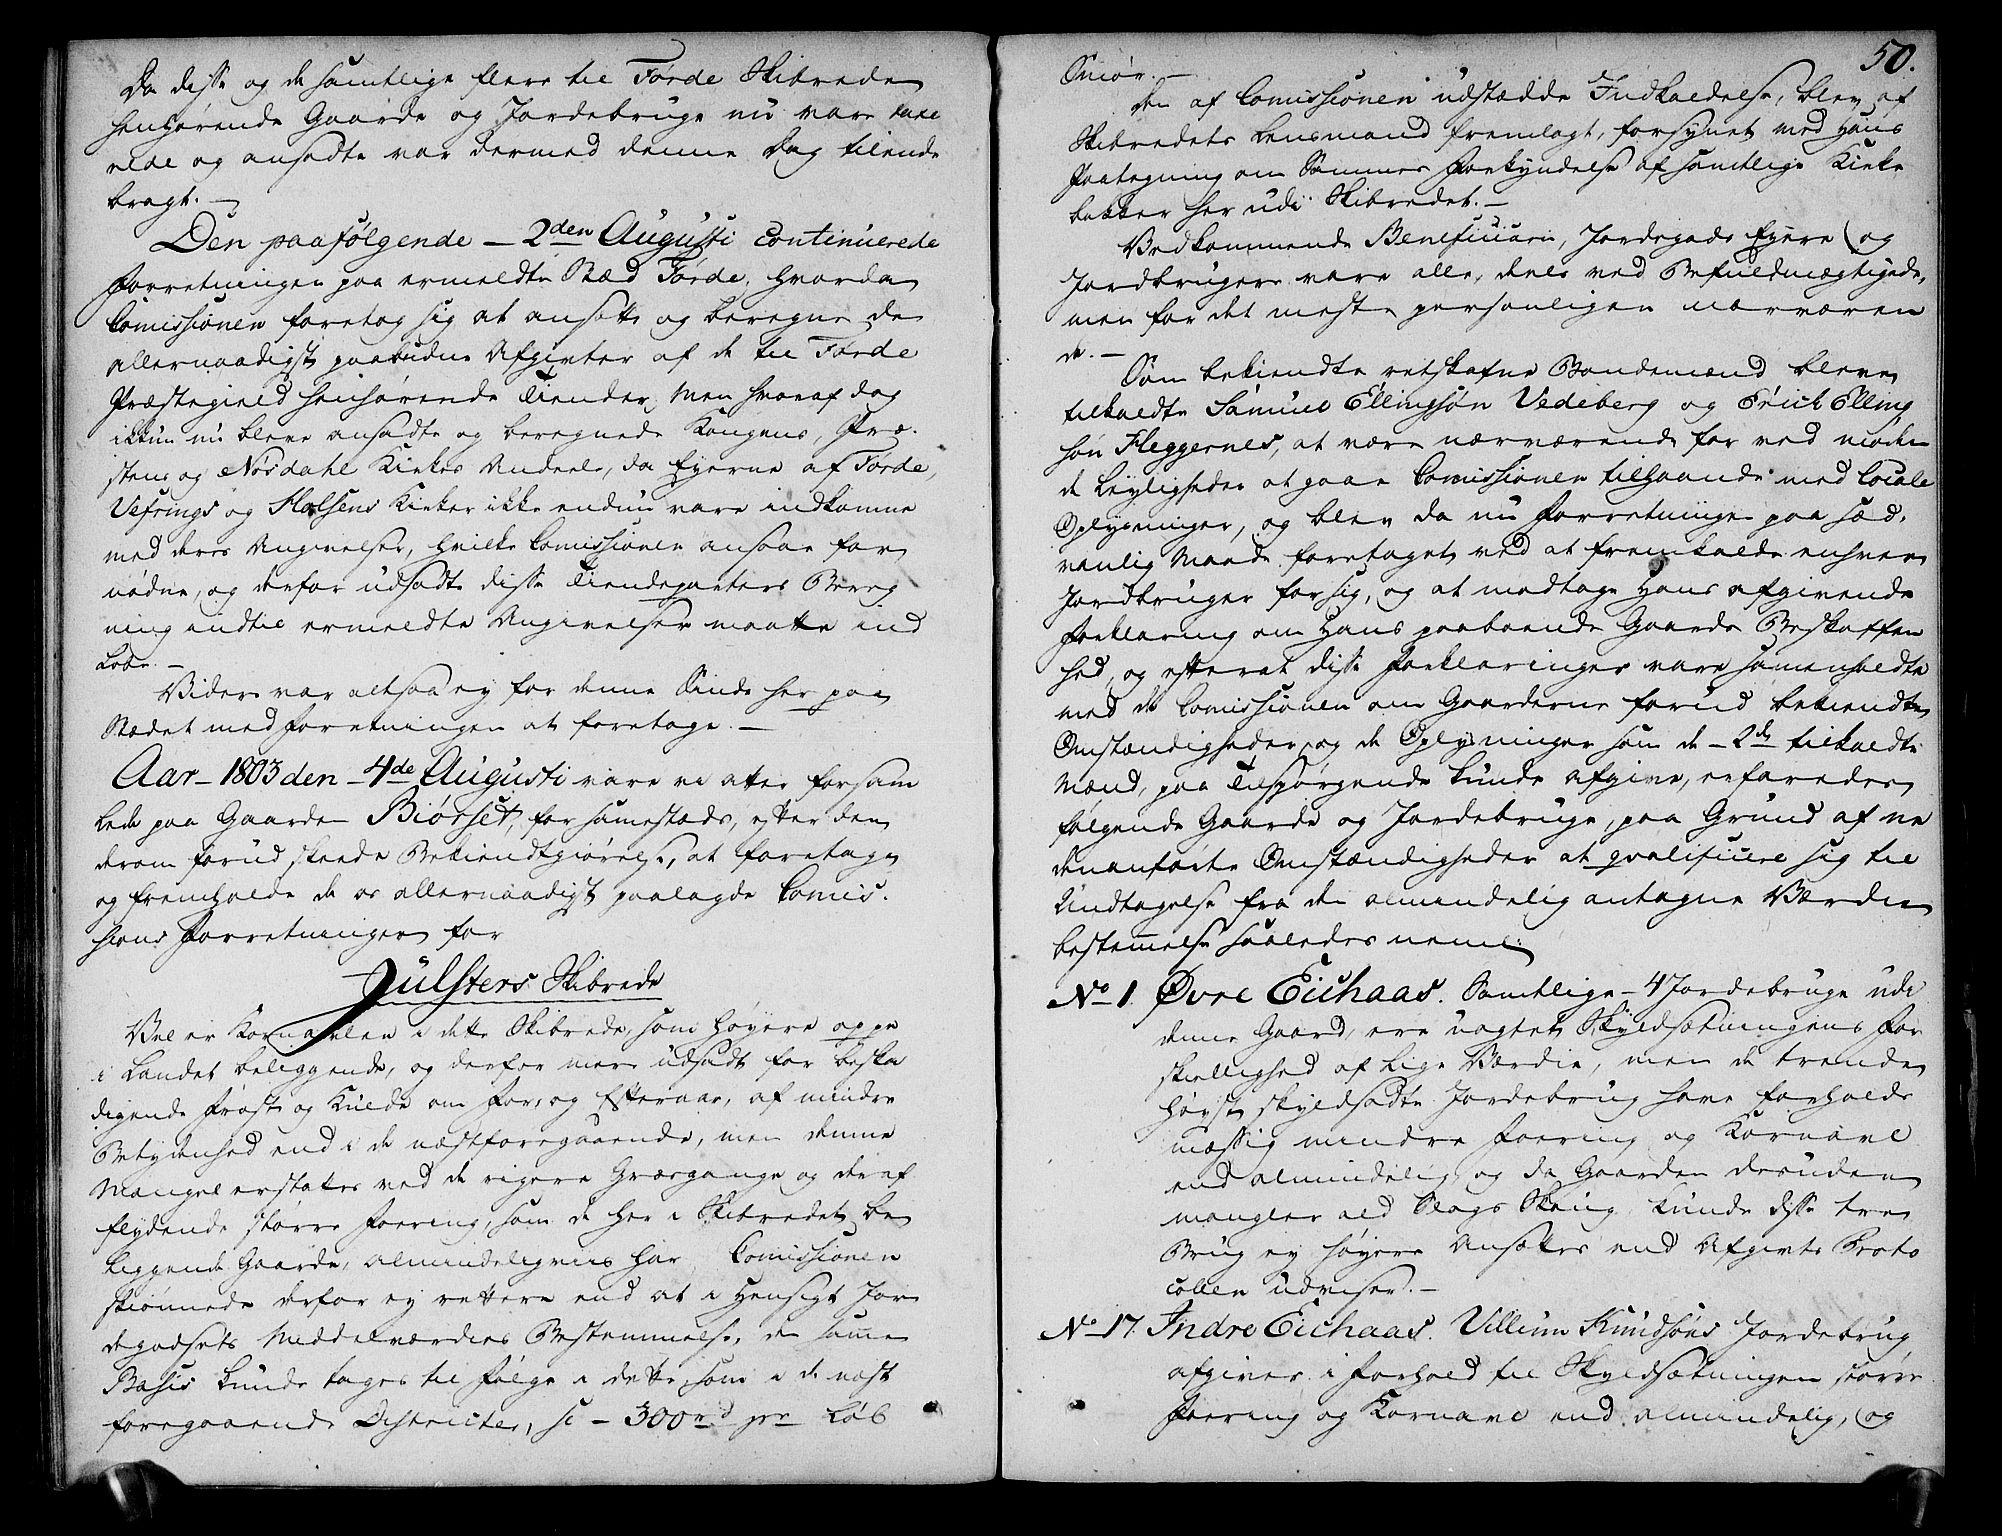 Da disse og de samtlige flere til Førde Skibrede
henhørende Gaarde og Jordebruge nu vare taxe
rede og ansadte var dermed denne Dag tilende
bragt. —
Den paafølgende — 2den Augusti continuerede
Forretningen paa ermeldte Stæd Førde, hvorda
Comissionen foretog sig at ansette og beregne de
allernaadigst paabudne Afgivter af de til Førde
Præstegield henhørende Tiender, Men hvoraf dog
ikkun nu bleve ansadte og beregnede Kongens, Præ-
stens og Nøsdahl Kirkes Andeele, da Eyerne af Førde,
Vefrings og Holsens Kirker ikke endnu vare indkomne
med deres Angivelser, hvilke Comissionen ansaae for
nødne, og derfor udsadte disse Tiendeparters Bereg
ning indtil ermeldte Angivelser maatte ind
løbe. —
Videre var altsaa ey for denne Sinde her paa
Stædet med Forretningen at foretage. —
Aar — 1803 den — 4de Augusti vare vi atter forsam
lede paa Gaarden Biørset, for sammestæds, efter den
derom forud skeede Bekiendtgiørelse, at foretage
og fremholde de os allernaadigst paalagde Comis-
sions Forretninger for
Jülsters Skibrede
Vel er Kornavlen i dette Skibrede, som høyere oppe
i Landet beliggende, og derfor mere udsadt for beska
digende Frost og Kulde om For, og Efteraar, af mindre
Betydenhed end i de næstforegaaende, men denne
Mangel erstates ved de rigere Græsgange og deraf
flydende større Foering, som de her i Skibredet be
liggende Gaarde, almindeligviis har, Comissionen
skiønnede derfor ey rettere end at i Hensigt Jor
degodsets Middelværdies Bestemmelse, den samme
Basis kunde tages til Følge i dette, som i de næst
foregaaende Districter, sc — 300rd pr Løb
50.
Smør. —
Den af Comissionen udstædde Indkaldelse, blev af
Skibredets Lensmand fremlagt, forsynet med Hans
Paategning om Sammes Forkyndelse af samtlige Kirke
bakker her udi Skibredet. —
Vedkommende Beneficiarii, Jordegods Eyere og
Jordbrugere vare alle, deels ved Befuldmægtigede,
men for det meste personligen nærværen
de. —
Som bekiendte retskafne Bondemænd bleve
tilkaldte Samuel Ellingsøn Vedeberg og Erich Elling
søn Fleggernes, at være nærværende for ved møden
de Leyligheder at gaae Comissionen tilhaande med Locale
Oplysninger, og blev da nu Forretningen paa sæd-
vanlig Maade foretaget ved at fremkalde enhver
Jordbruger for sig, og at modtage Hans afgivende
Forklaring om Hans paaboende Gaards Beskaffen
hed, og efterat disse Forklaringer vare samenholdte
med de Comissionen om Gaarderne forud bekiendte
Omstændigheder, og de Oplysninger som de — 2de tilkaldte
Mænd, paa Tilspørgende kunde afgive, erfaredes
følgende Gaarde og Jordebruge, paa Grund af ne
denanførte Omstændigheder at qvalificere sig til
Undtagelse fra den almindelig antagne Værdie
bestemmelse saaledes neml:
No 1. Øvre Eichaas. Samtlige — 4 Jordebruge udi
denne Gaard, ere uagtet Skyldsætningens For
skiellighed af lige Værdie, men de trende
høyst skyldsadte Jordebrug have forholds
mæssig mindre Foering og Kornavl
end almindelig, og da Gaarden desuden
mangler ald Slags Skoug kunde disse tre
Brug ey høyere Ansættes end Afgivts Proto
collen udviser. —
No 17. Indre Eichaas. Villum Knudsøns Jordebrug
afgiver i Forhold til Skyldsætningen større
Foering og Kornavl end almindelig, og